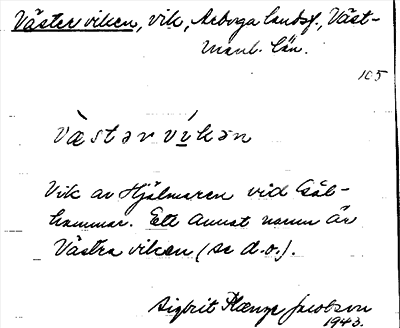 Västerviken, vik, Arboga landsf., Väst-
manl. län.
105
v ä s t ə r v í k ə n
Vik av Hjälmaren vid Gäl-
hammar. Ett annat namn är
Västra viken (se d.o.).
Sigbrit Plænge Jacobson
1943.